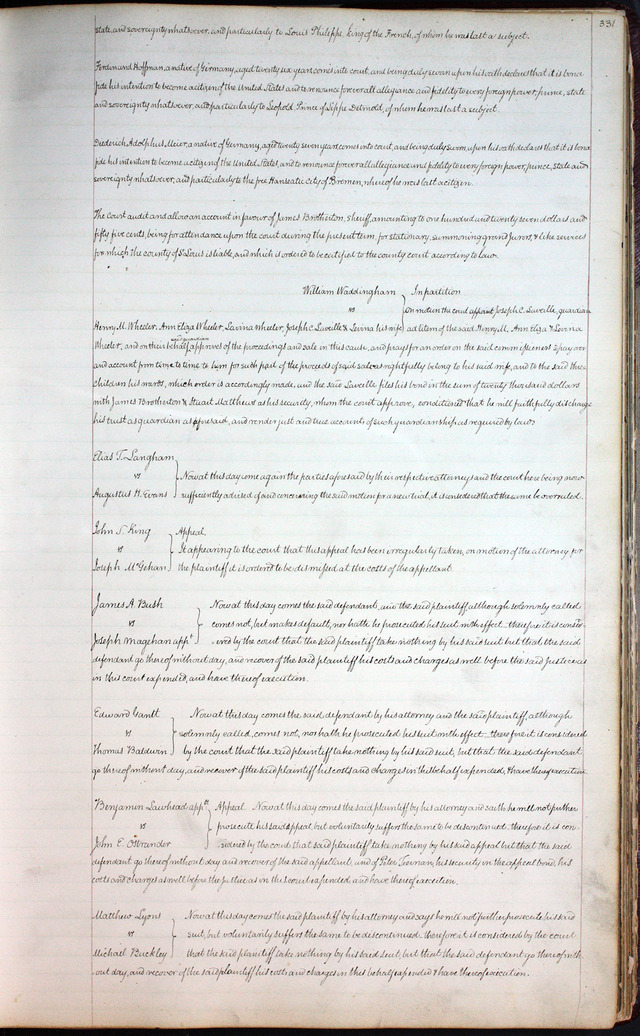 331
state, and sovereignty whatsoever, and particularly to Louis Philippe, King of the French, of whom he was last a subject.
Ferdinand Hoffman, a native of Germany, aged twenty six years, comes into court, and being duly sworn upon his oath declares that it is bona
fide his intention to become a citizen of the United States and to renounce forever all allegiance and fidelity to every foreign power, prince, state
and sovereignty whatsoever, and particularly to Leopold, Prince of Lippe Detmold, of whom he was last a subject.
Diederich Adolphus Meier, a native of Germany, aged twenty seven years, comes into court, and being duly sworn, upon his oath declares that it is bona
fide his intention to become a citizen of the United States, and to renounce forever all allegiance and fidelity to every foreign power, prince, state and
sovereignty whatsoever, and particularly to the free Hanseatic city of Bremen, where of he was last a citizen.
The court audit and allow an account in favour of James Brotherton, sheriff, amounting to one hundred and twenty seven dollars and
fifty five cents, being for attendance upon the court during the present term, for stationary, summoning grand jurors, & like services
for which the county of St Louis is liable, and which is ordered to be certified to the county court according to law.
William Waddingham } In partition
vs On motion the court appoint Joseph C. Laveille, guardian
Henry M. Wheeler, Ann Eliza Wheeler, Lavina Wheeler, Joseph C. Laveille & Levina his wife ad litem of the said Henry M. Ann Eliza & Levina
Wheeler, and on their behalf said guardian approves of the proceedings and sale in this cause, and prays for an order on the said commissioners to pay over
and account from time to time to him for such part of the proceeds of said sale as rightfully belong to his said, and to the said three
children his wards, which order is accordingly made, and the said Laveille files his bond in the sum of twenty thousand dollars
with James Brotherton & Stuart Matthews as his security, whom the court approve, conditioned that he will faithfully discharge
his trust as guardian as aforesaid, and render just and true accounts of such guardianship as required by law.
Elias T. Langham
vs } Now at this day come again the parties aforesaid by their respective attorneys and the court here being now
Augustus H. Evans sufficiently advised of and concerning the said motion for a new trial, it is considered that the same be overruled.
John S. King Appeal,
vs } It appearing to the court that this appeal has been irregularly taken, on motion of the attorney for
Joseph McGehan the plaintiff it is ordered to be dismissed at the costs of the appellant.
James A. Bush Now at this day comes the said defendant, and the said plaintiff although solemnly called
vs } comes not, but makes default, nor hath he prosecuted his suit with effect. therefore it is consid-
Joseph Magehan appt ered by the court that the said plaintiff take nothing by his said suit but that the said
defendant go thereof without day, and recover of the said plaintiff his costs and charges as well before the said justice as
in this court expended, and have thereof execution.
Edward Gantt Now at this day comes the said defendant by his attorney and the said plaintiff, although
vs } solemnly called, comes not, nor hath he prosecuted his suit with effect. therefore it is considered
Thomas Baldwin by the court that the said plaintiff take nothing by his said suit, but that the said defendant
go thereof without day, and recover of the said plaintiff his costs and charges in this behalf expended, & have thereof execution
Benjamin Lawhead appt Appeal. Now at this day comes the said plaintiff by his attorney and saith he will not further
vs } prosecute his said appeal, but voluntarily suffers the same to be discontinued. therefore it is con-
John E. Ostrander sidered by the court that said plaintiff take nothing by his said appeal but that the said
defendant go thereof without day and recover of the said appellant, and of Peter his security in the appeal bond, his
costs and charges as well before the justice as in this court expended, and have thereof execution.
Matthew Lyons Now at this day comes the said plaintiff by his attorney and says he will not further prosecute his said
vs } suit, but voluntarily suffers the same to be discontinued. therefore it is considered by the court
Michael Buckley that the said plaintiff take nothing by his said suit, but that the said defendant go thereof with-
out day, and recover of the said plaintiff his costs and charges in this behalf expended & have thereof execution.